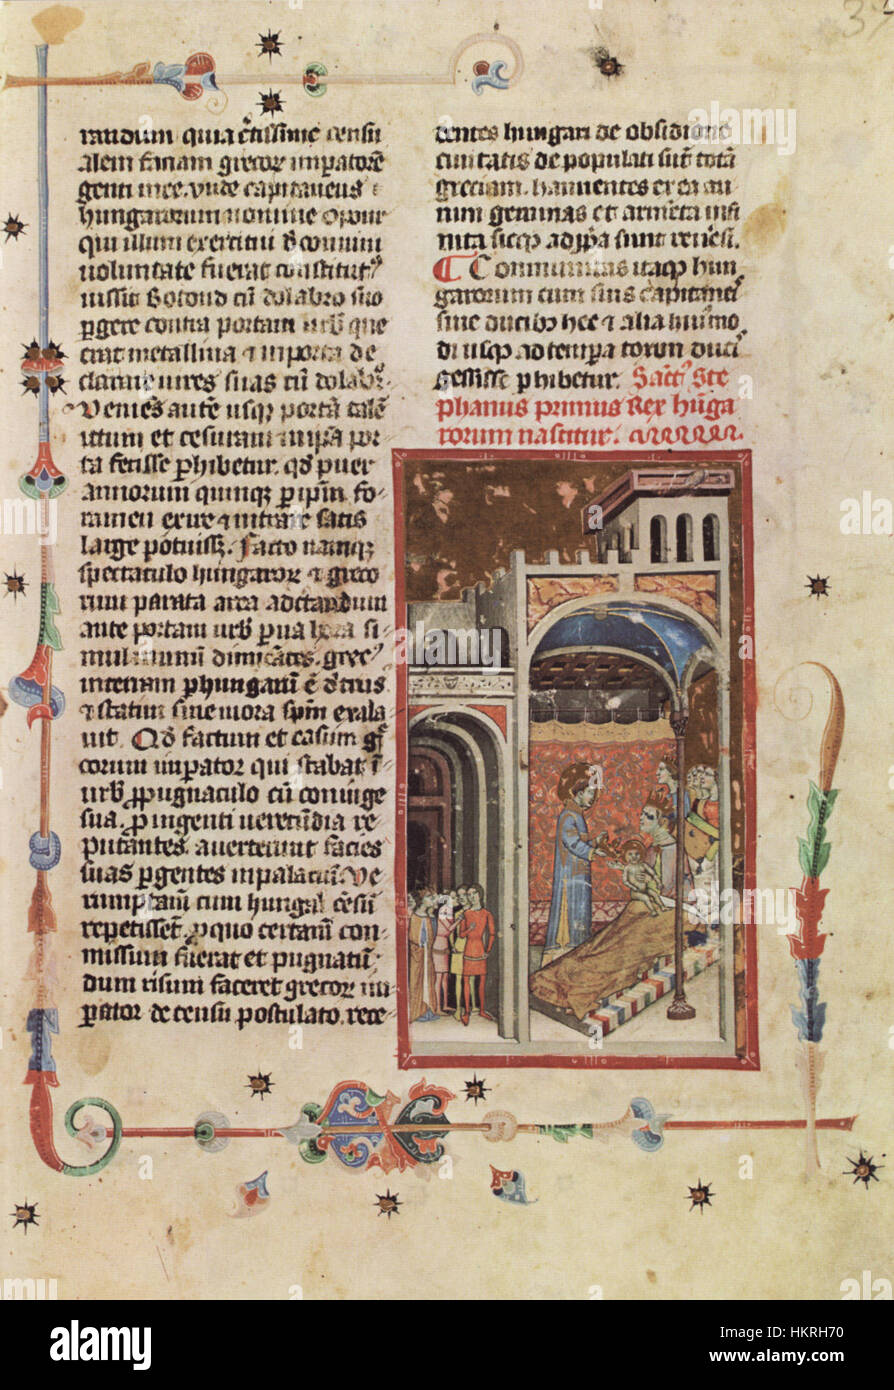 37
randum quia c̄tissime censu
alem faciam grecoꝝ imp̄atorē
genti mee. vnde capitaneus
hungarorum nomine opour
qui illum exercitui d̄ comuni
voluntate fuerat constitutꝰ
iussit Botond cū dolabro suo
ꝑgere contra portam urb̄ que
erat metallina ⁊ in porta de
clararet vires suas cū dolabꝛ̄.
Veniēs autē usqꝫ portā talē
ictum et cesuram in ip̄a por
ta fecisse ꝑhibetur. qd̄ puer
annorum quinqꝫ ꝑ ip̄m fo
ramen exire ⁊ intrare satis
large potuissꝫ. Facto namqꝫ
spectaculo hungaroꝝ ⁊ greco
rum parata area ad certandum
ante portam urb̄ ꝑua hora si
mul nimiū dimicātes. grecꝰ
interim ꝑ hungarū ē deiectus
⁊ statim sine mora sp̄m exala
uit. Qd̄ factum et casum gꝛ̄
corum imperator qui stabat ī
urb̄ ꝓpugnaculo cū coniuge
sua. ꝓ ingenti verecūdia re
putantes. auerterunt facies
suas ꝑgentes in palaciū. Ve
rumptam̄ cum hungaꝛ̄ cēsū
repetisset. ꝓ quo certam̄ con
missum fuerat et pugnatū;
dum risum faceret grecoꝝ im
ꝑator de censu postulato. rece
dentes hungari de obsidione
ciuitatis de populati sūt totā
greciam. hauuentes ex ea au
rum gemmas et armēta infi
nita sicqꝫ ad ꝓp̄a sunt reūsi.
Communitas itaqꝫ hun
garorum cum suis capitaneꝭ
siue ducibꝫ hec ⁊ alia huiꝰmo
di usqꝫ ad tempa toxun duciꝭ
gessisse ꝑhibetur. Sāctꝰ Ste
phanus primus Rex hūga
rorum nascitur.
alamy
alamy
Image ID: HKRH70
www.alamy.com